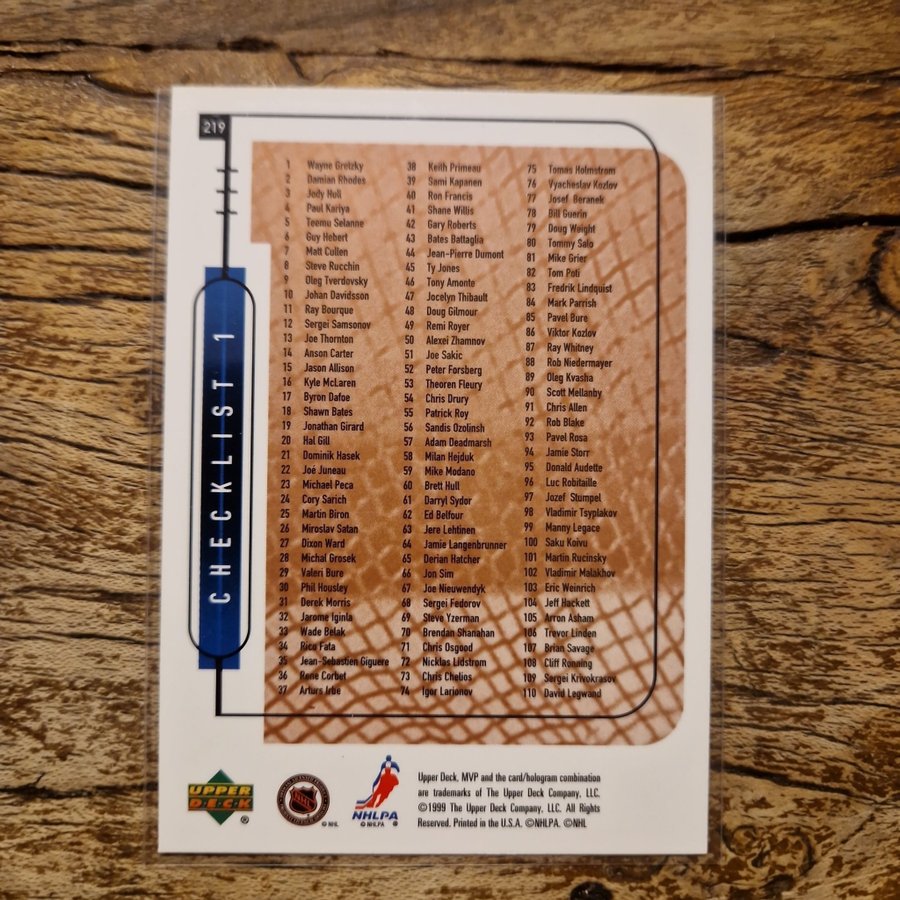 219
CHECKLIST 1
1 Wayne Gretzky
2 Damian Rhodes
3 Jody Hull
4 Paul Kariya
5 Teemu Selanne
6 Guy Hebert
7 Matt Cullen
8 Steve Rucchin
9 Oleg Tverdovsky
10 Johan Davidsson
11 Ray Bourque
12 Sergei Samsonov
13 Joe Thornton
14 Anson Carter
15 Jason Allison
16 Kyle McLaren
17 Byron Dafoe
18 Shawn Bates
19 Jonathan Girard
20 Hal Gill
21 Dominik Hasek
22 Joé Juneau
23 Michael Peca
24 Cory Sarich
25 Martin Biron
26 Miroslav Satan
27 Dixon Ward
28 Michal Grosek
29 Valeri Bure
30 Phil Housley
31 Derek Morris
32 Jarome Iginla
33 Wade Belak
34 Rico Fata
35 Jean-Sebastien Giguere
36 Rene Corbet
37 Arturs Irbe
38 Keith Primeau
39 Sami Kapanen
40 Ron Francis
41 Shane Willis
42 Gary Roberts
43 Bates Battaglia
44 Jean-Pierre Dumont
45 Ty Jones
46 Tony Amonte
47 Jocelyn Thibault
48 Doug Gilmour
49 Remi Royer
50 Alexei Zhamnov
51 Joe Sakic
52 Peter Forsberg
53 Theoren Fleury
54 Chris Drury
55 Patrick Roy
56 Sandis Ozolinsh
57 Adam Deadmarsh
58 Milan Hejduk
59 Mike Modano
60 Brett Hull
61 Darryl Sydor
62 Ed Belfour
63 Jere Lehtinen
64 Jamie Langenbrunner
65 Derian Hatcher
66 Jon Sim
67 Joe Nieuwendyk
68 Sergei Fedorov
69 Steve Yzerman
70 Brendan Shanahan
71 Chris Osgood
72 Nicklas Lidstrom
73 Chris Chelios
74 Igor Larionov
75 Tomas Holmstrom
76 Vyacheslav Kozlov
77 Josef Beranek
78 Bill Guerin
79 Doug Weight
80 Tommy Salo
81 Mike Grier
82 Tom Poti
83 Fredrik Lindquist
84 Mark Parrish
85 Pavel Bure
86 Viktor Kozlov
87 Ray Whitney
88 Rob Niedermayer
89 Oleg Kvasha
90 Scott Mellanby
91 Chris Allen
92 Rob Blake
93 Pavel Rosa
94 Jamie Storr
95 Donald Audette
96 Luc Robitaille
97 Jozef Stumpel
98 Vladimir Tsyplakov
99 Manny Legace
100 Saku Koivu
101 Martin Rucinsky
102 Vladimir Malakhov
103 Eric Weinrich
104 Jeff Hackett
105 Arron Asham
106 Trevor Linden
107 Brian Savage
108 Cliff Ronning
109 Sergei Krivokrasov
110 David Legwand
UPPER
DECK ®
NHL
© NHL
NHLPA
© NHLPA ®
Upper Deck, MVP and the card/hologram combination
are trademarks of The Upper Deck Company, LLC.
©1999 The Upper Deck Company, LLC. All Rights
Reserved. Printed in the U.S.A. ©NHLPA. ©NHL